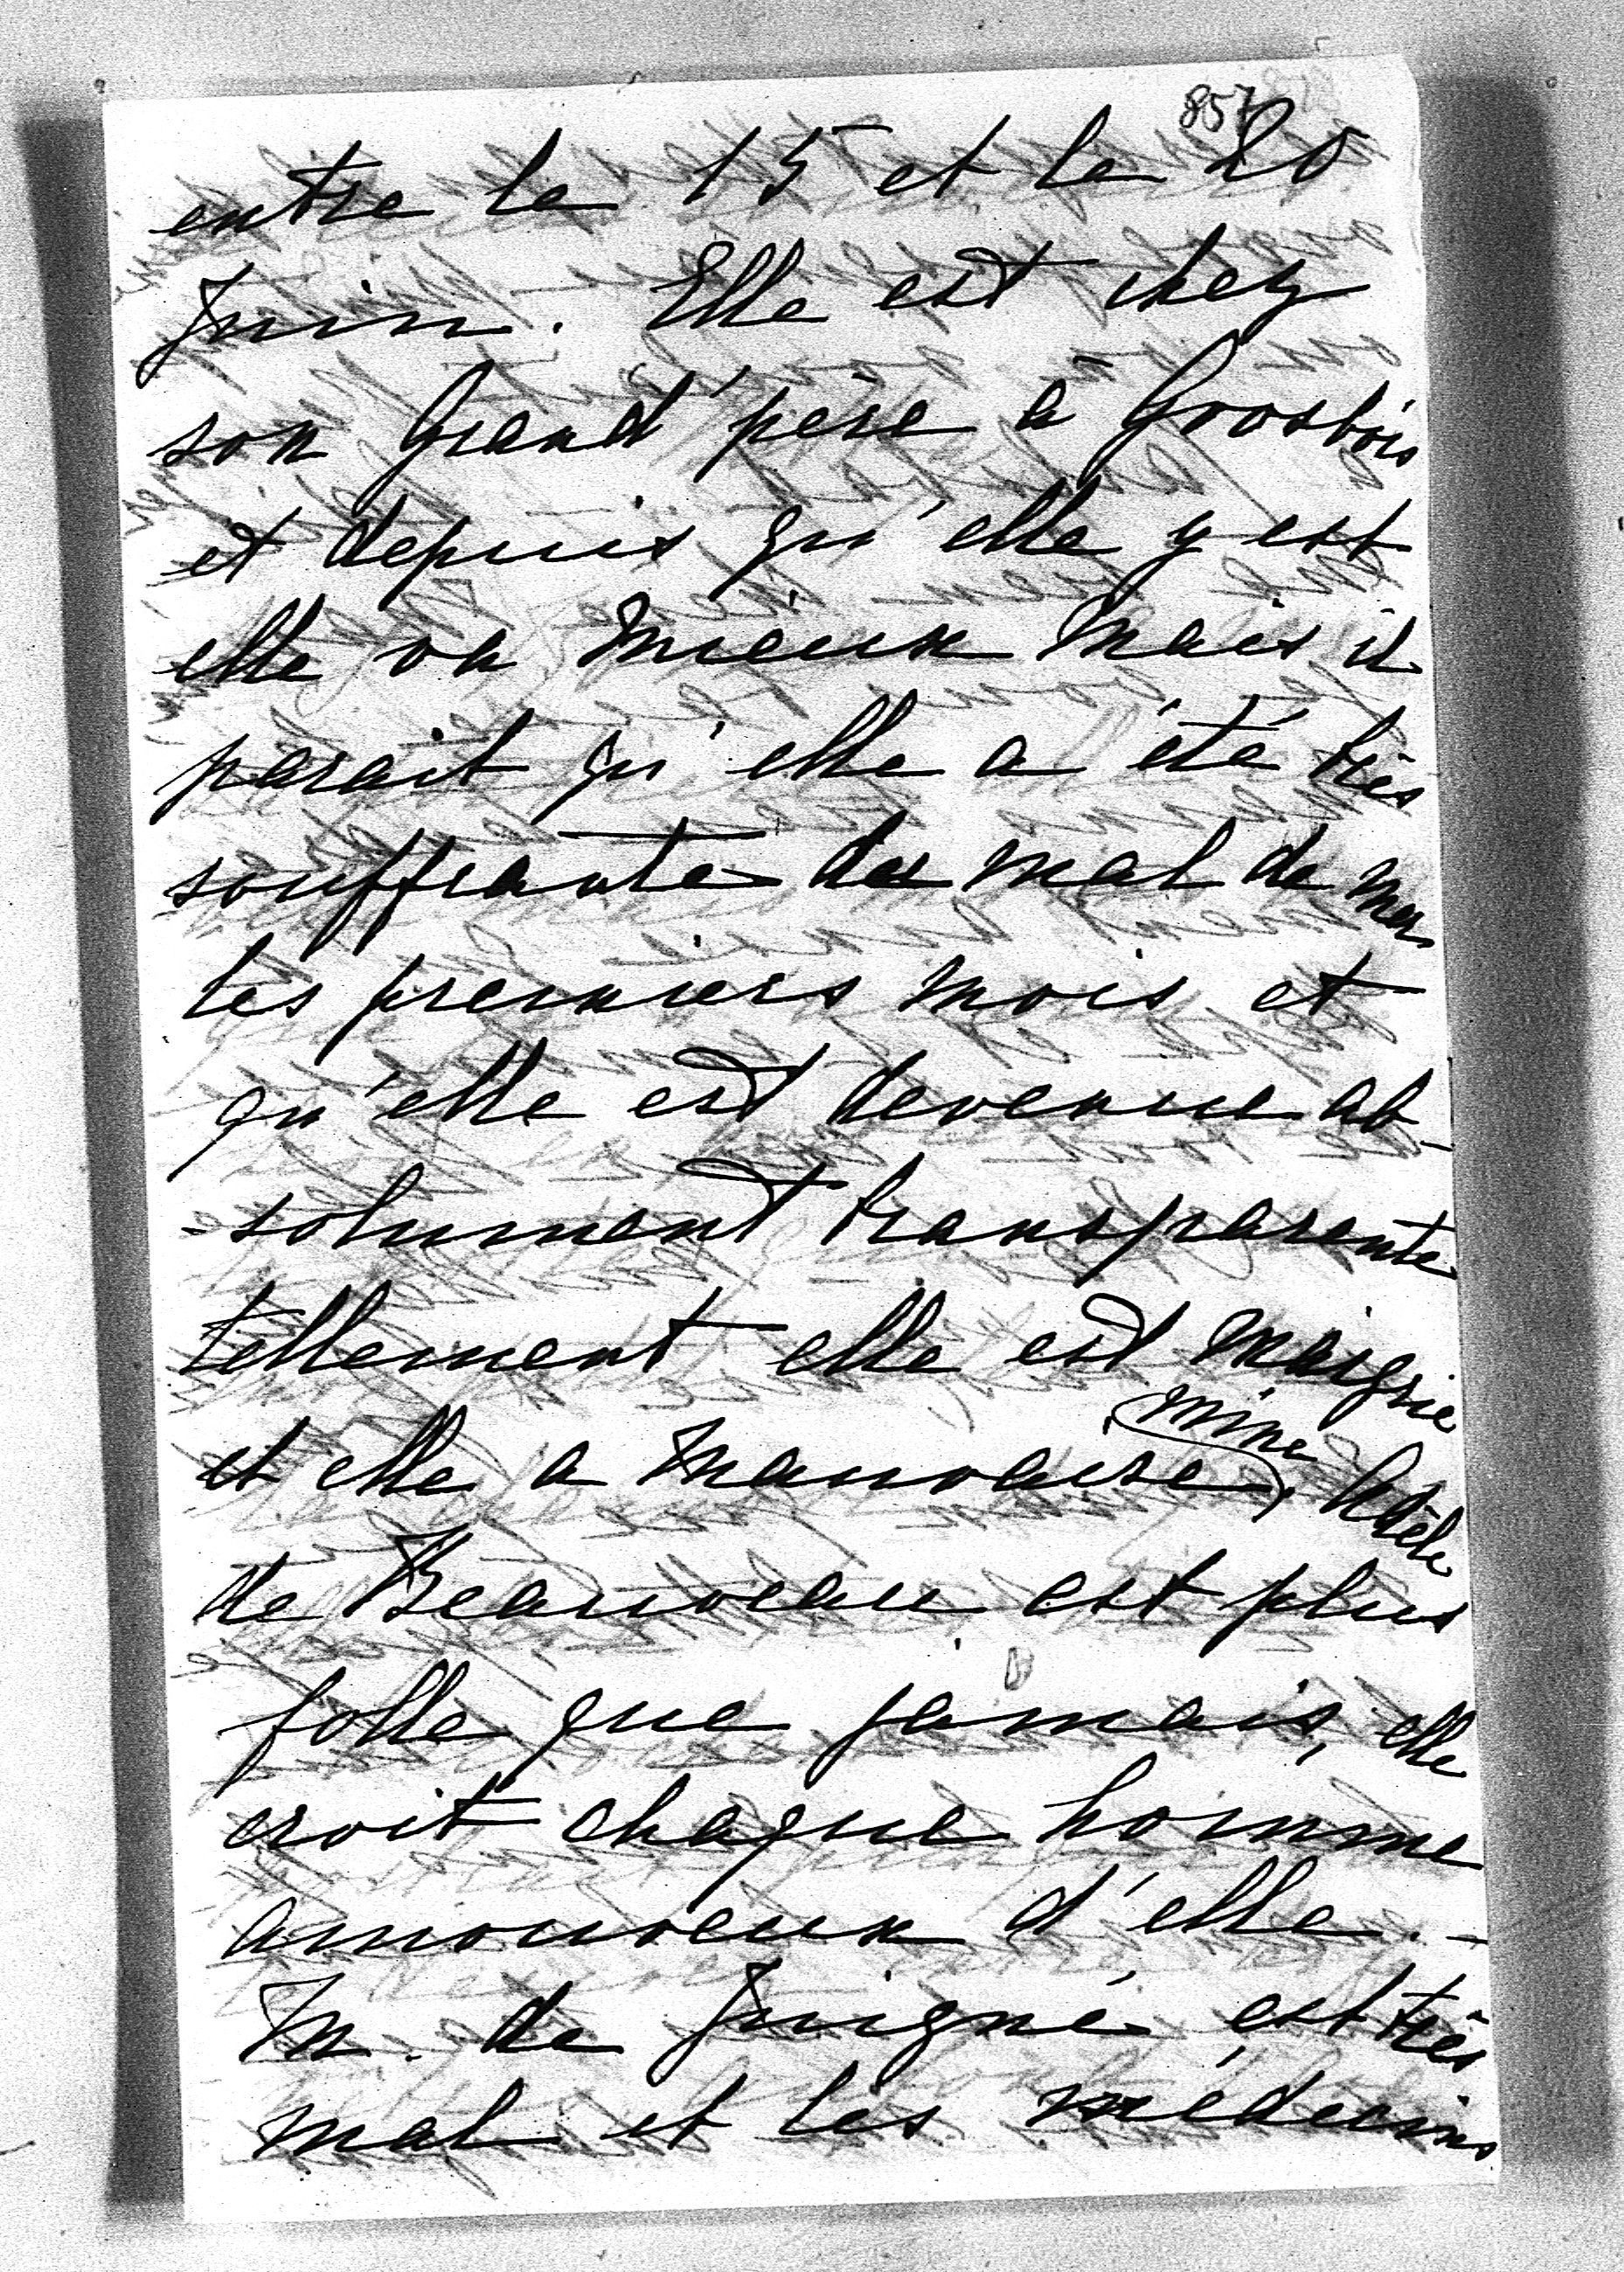 857
entre le 15 et le 20
Juin. Elle est chez
son Grand'père à Grosbois
et depuis qu'elle y est
elle va mieux mais il
parait qu'elle a été très
souffrante de mal de mer
les premiers mois et
qu'elle est devenue ab-
-solument transparente
tellement elle est maigrie
et elle a mauvaise mine,
de Beauveau est plus
folle que jamais, elle
croit chaque homme
amoureux d'elle.-
M. de Juigné est très
mal et les médecins